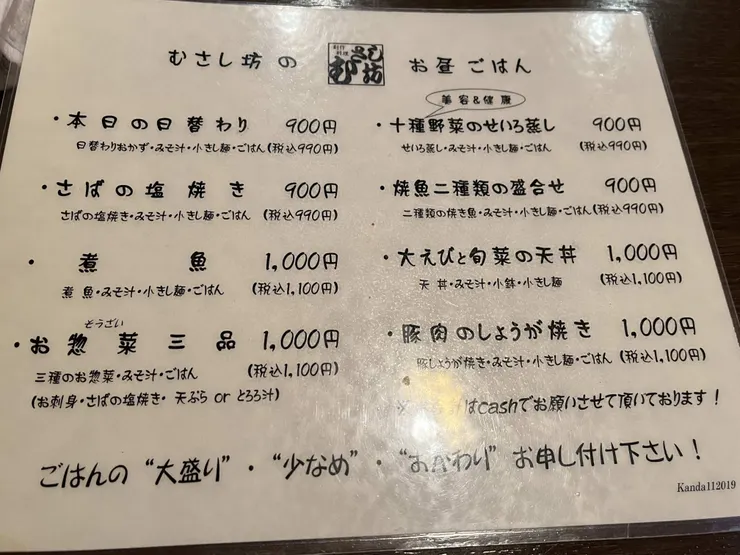 むさし坊の お昼ごはん
・本日の日替わり 900円
日替わりおかず・みそ汁・小きし麺・ごはん (税込990円)
・さばの塩焼き 900円
さばの塩焼き・みそ汁・小きし麺・ごはん (税込990円)
・煮魚 1,000円
煮魚・みそ汁・小きし麺・ごはん (税込1,100円)
そうざい
・お惣菜三品 1,000円
三種のお惣菜・みそ汁・ごはん (税込1,100円)
(お刺身・さばの塩焼き・天ぷら or とろろ汁)
美容&健康
・十種野菜のせいろ蒸し 900円
せいろ蒸し・みそ汁・小きし麺・ごはん (税込990円)
・焼魚二種類の盛合せ 900円
二種類の焼き魚・みそ汁・小きし麺・ごはん (税込990円)
・大えびと旬菜の天丼 1,000円
天丼・みそ汁・小鉢・小きし麺 (税込1,100円)
・豚肉のしょうが焼き 1,000円
豚しょうが焼き・みそ汁・小きし麺・ごはん (税込1,100円)
はcashでお願いさせて頂いております!
ごはんの“大盛り”・“少なめ”・“おかわり” お申し付け下さい!
Kanda112019